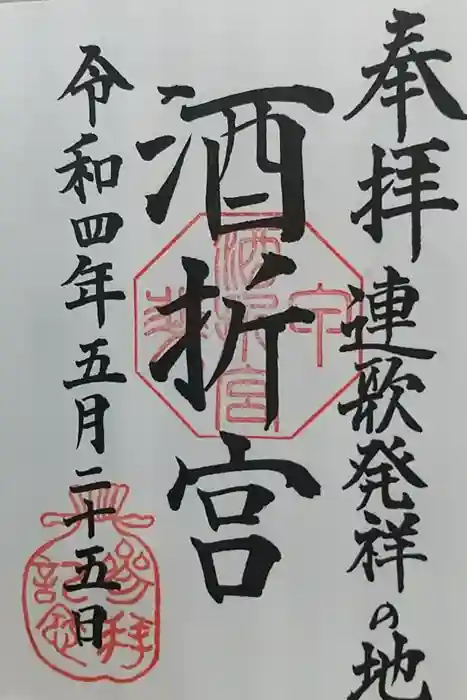 奉拝 連歌発祥の地
酒折宮
令和四年五月二十五日
参拝
記念